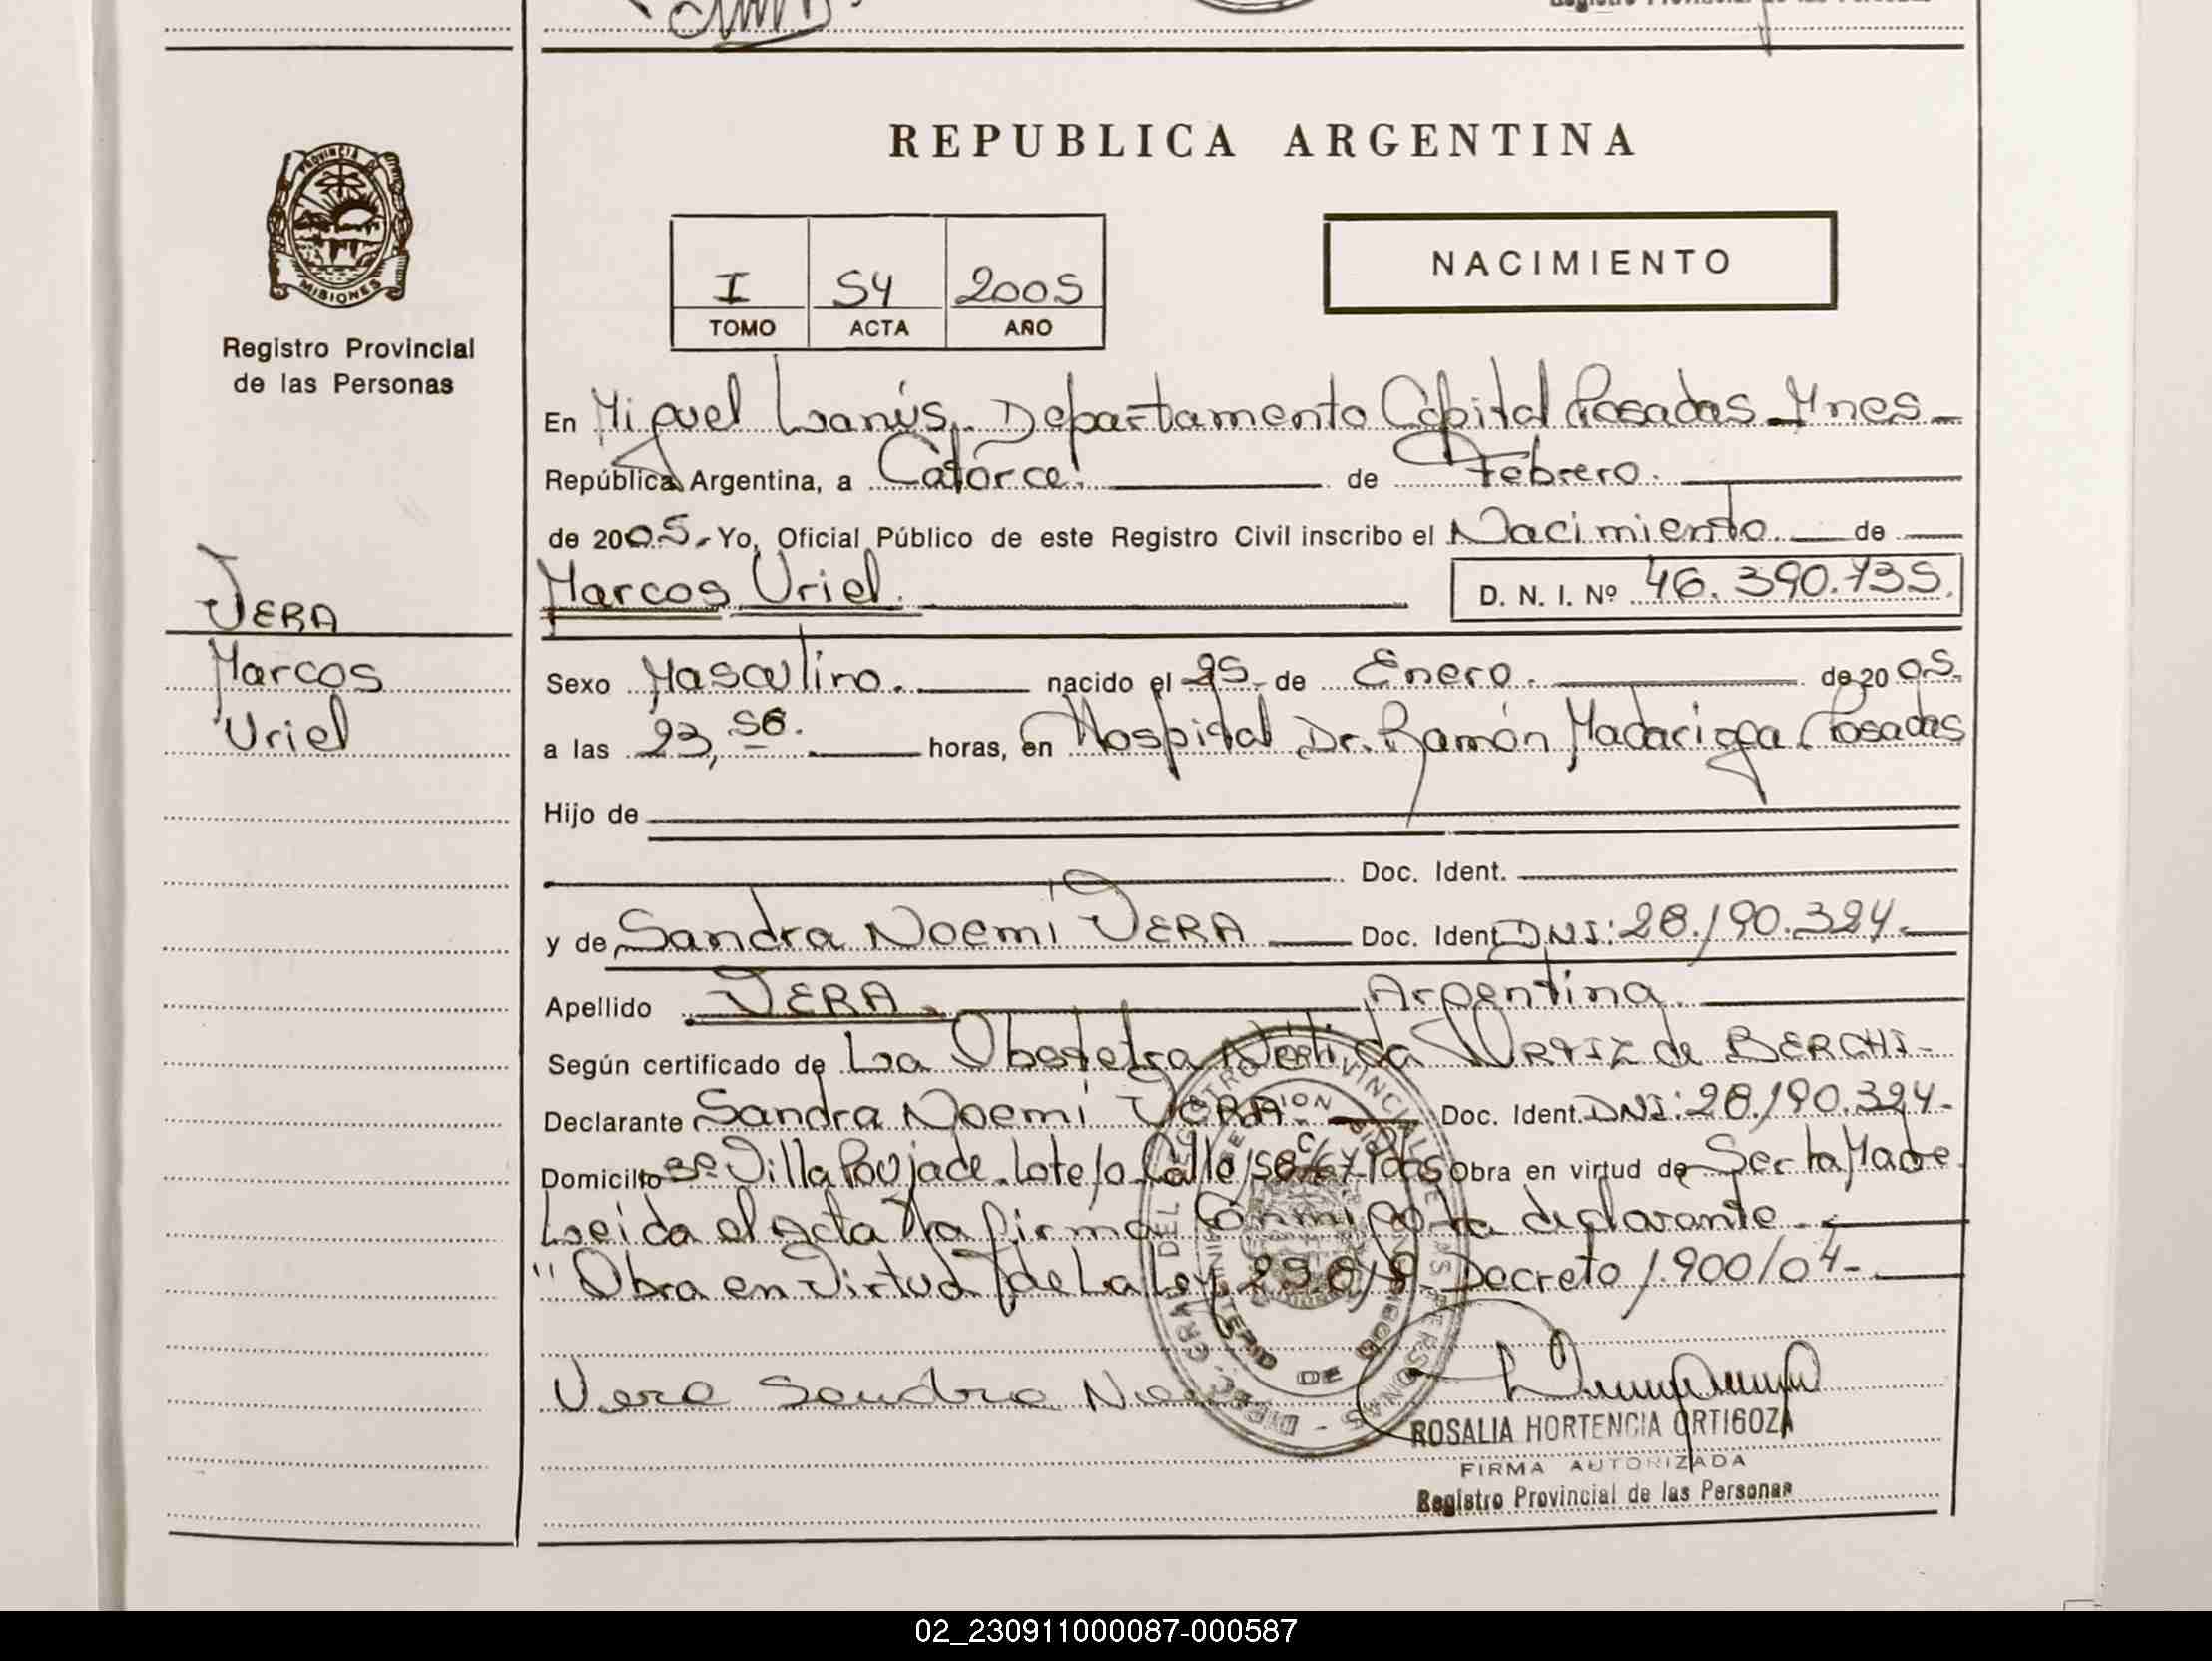 Registro Provincial de las Personas
REPUBLICA ARGENTINA
PROVINCIA DE
MISIONES
Registro Provincial
de las Personas
I S4 2005
TOMO ACTA AÑO
NACIMIENTO
En Miguel Lanús. Departamento Capital Posadas Mnes
República Argentina, a Catorce. de Febrero.
de 2005. Yo, Oficial Público de este Registro Civil inscribo el Nacimiento de
Marcos Uriel. D. N. I. Nº 46.390.735.
VERA
Marcos
Uriel
Sexo Masculino. nacido el 25 de Enero. de 2005.
a las 23,56. horas, en Hospital Dr. Ramón Madariaga Posadas
Hijo de
Doc. Ident.
y de Sandra Noemi VERA Doc. Ident. DNI: 28.190.324.
Apellido VERA. Argentina.
Según certificado de La Obstetra de BERCHI
Declarante Sandra Noemi VERA. Doc. Ident. DNI: 28.190.324.
Domicilio Villa Poujade. Lote Calle Pdas Obra en virtud de Ser la Madre
Leida el Acta la firma Conmigo la declarante.
"Obra en Virtud de La Ley Decreto 1.900/04-
Vera Sandra
ROSALIA HORTENCIA ORTIGOZA
FIRMA AUTORIZADA
Registro Provincial de las Personas
02_230911000087-000587